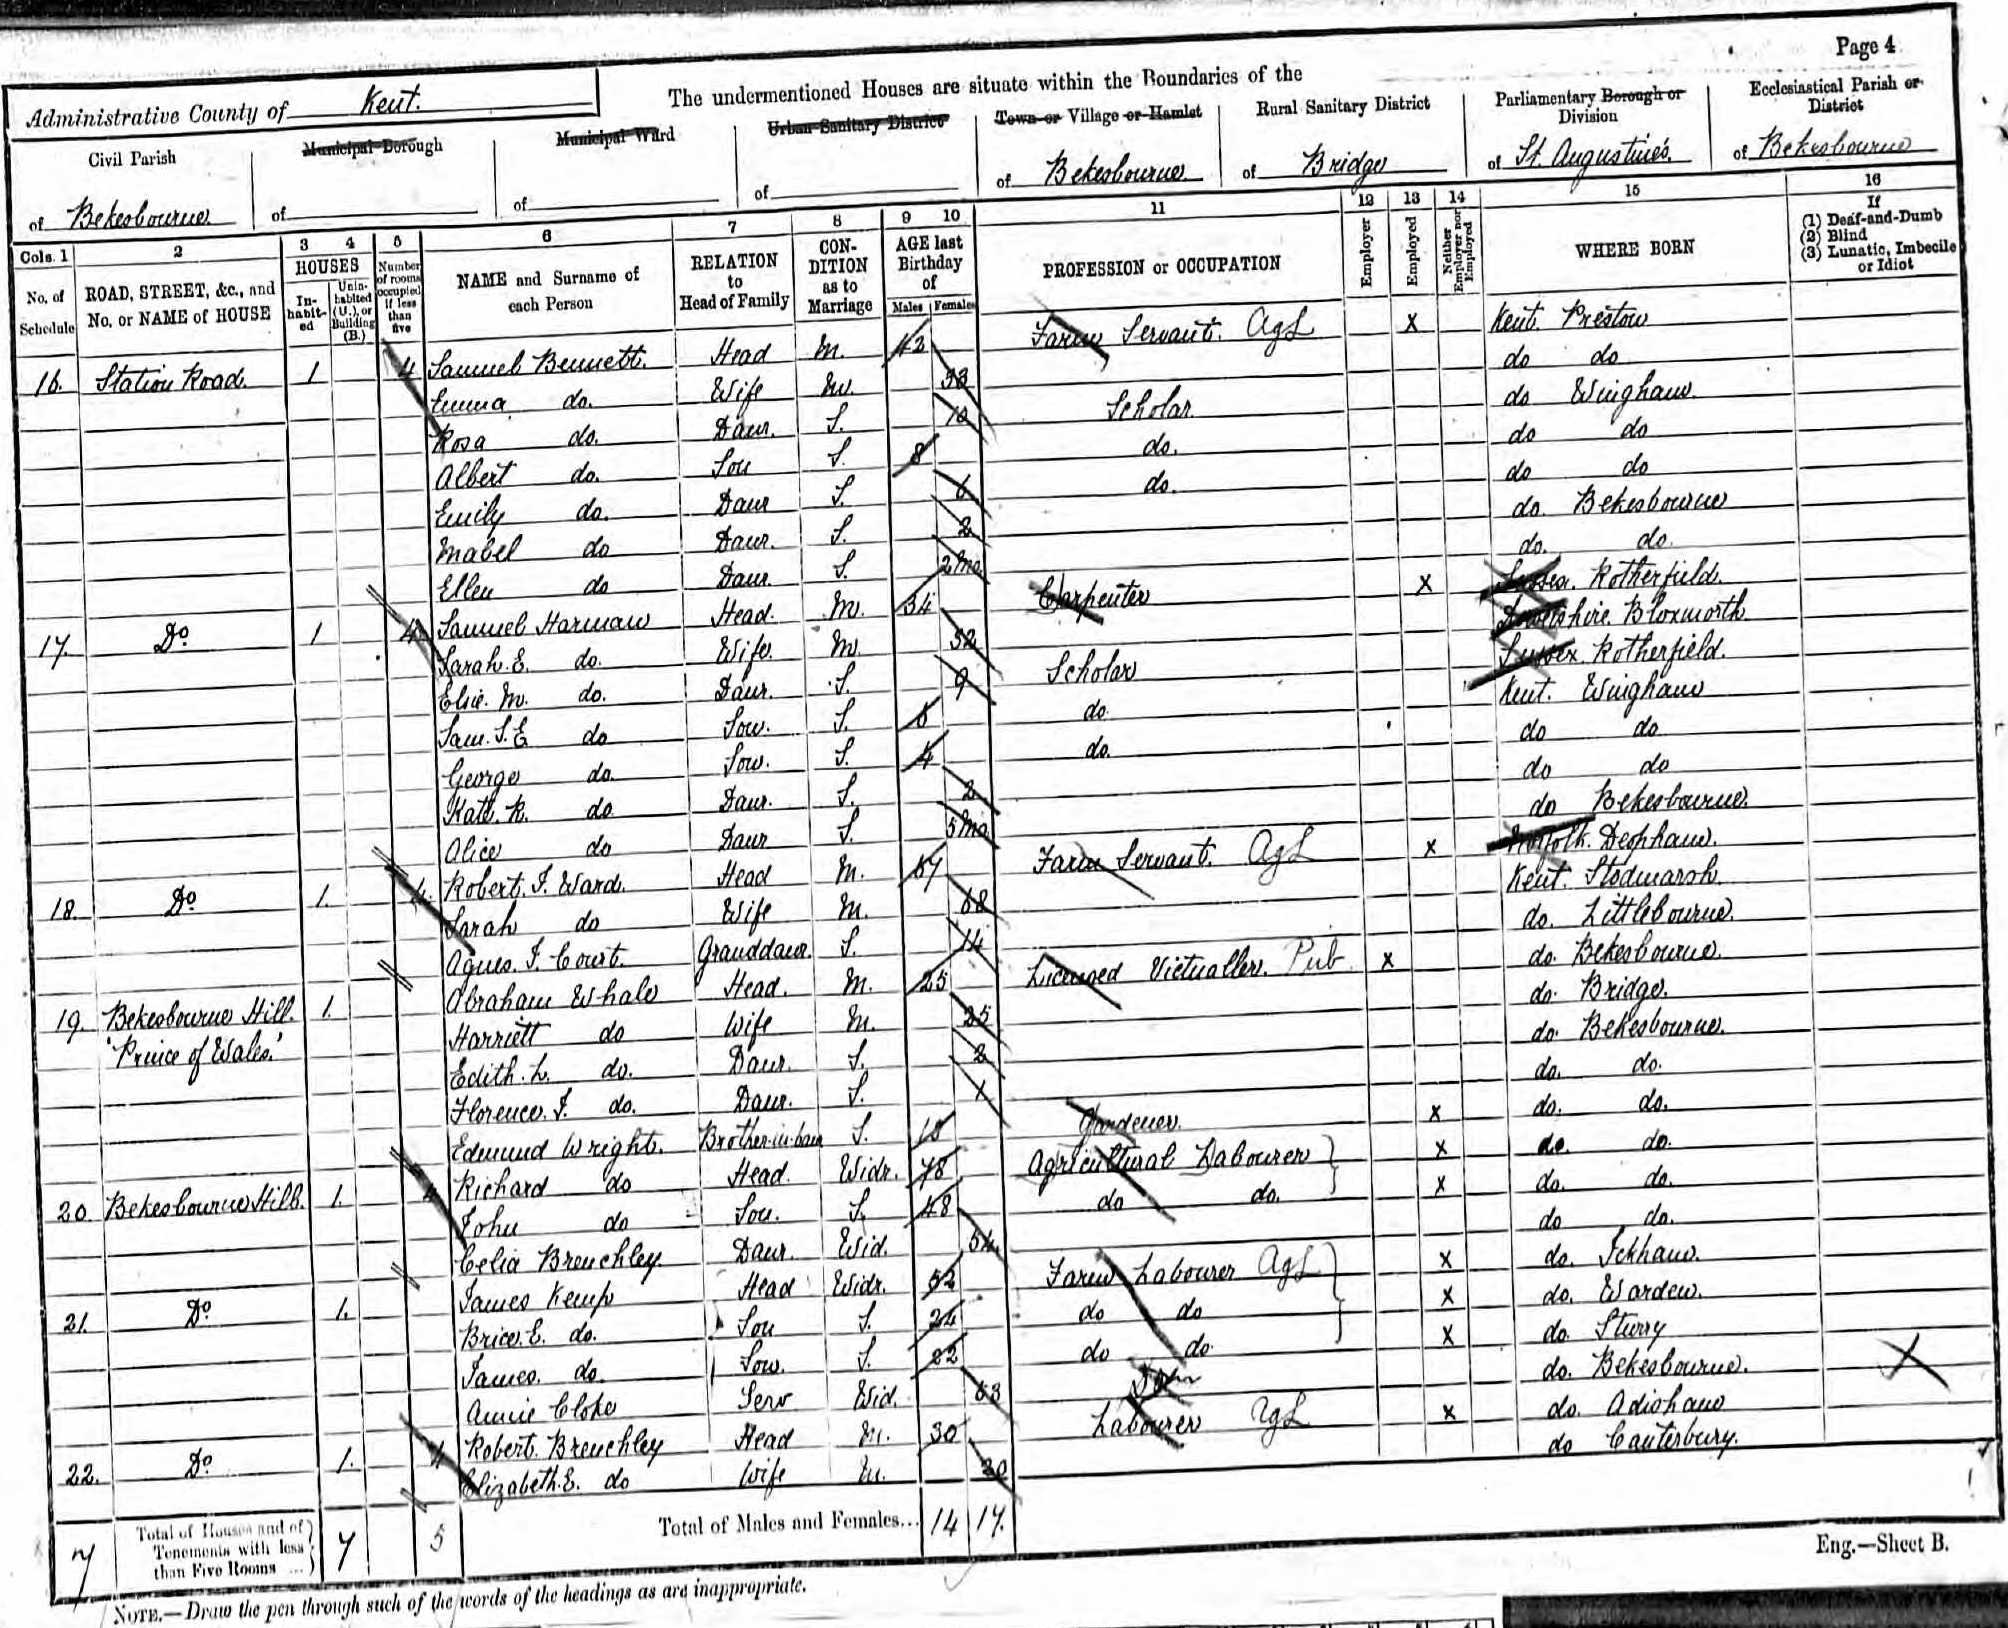 Page 4
Administrative County of Kent.
The undermentioned Houses are situate within the Boundaries of the
Civil Parish of Bekesbourne
Municipal Borough of
Municipal Ward of
Urban Sanitary District of
Town or Village or Hamlet of Bekesbourne
Rural Sanitary District of Bridge
Parliamentary Borough or Division of St. Augustine's.
Ecclesiastical Parish or District of Bekesbourne
Cols. 1 2 3 4 5 6 7 8 9 10 11 12 13 14 15 16
No. of Schedule
ROAD, STREET, &c., and No. or NAME of HOUSE
HOUSES
In-habit-ed
Unin-habited (U.), or Building (B.)
Number of rooms occupied if less than five
NAME and Surname of each Person
RELATION to Head of Family
CON-DITION as to Marriage
AGE last Birthday of
Males Females
PROFESSION or OCCUPATION
Employer
Employed
Neither Employer nor Employed
WHERE BORN
If
(1) Deaf-and-Dumb
(2) Blind
(3) Lunatic, Imbecile or Idiot
16. Station Road. 1 4 Samuel Bennett. Head M. 42 Farm Servant. AgL X Kent. Preston
Emma do. Wife M. 33 do do
Rosa do. Daur. S. 10 Scholar do Wingham
Albert do. Son S. 8 do. do do
Emily do. Daur S. 6 do. do do
Mabel do Daur. S. 2 do. Bekesbourne
Ellen do Daur. S. 2 mo do. do.
17. Do 1 4 Samuel Harman Head. M. 34 Carpenter X Sussex. Rotherfield.
Sarah. E. do. Wife. M 32 Dorsetshire. Bloxworth
Elsie. M. do. Daur. S. 9 Scholar Sussex. Rotherfield.
Sam. S. E do Son. S. 6 do. Kent. Wingham
George do. Son. S. 4 do. do do
Kate. R. do. Daur. S. 2 do do
Alice do Daur S. 5 mo do Bekesbourne.
18. Do 1. 4 Robert. J. Ward. Head M. 67 Farm Servant. AgL X Norfolk. Deopham.
Sarah do Wife M. 68 Kent. Stodmarsh
Agnes. J. Court. Granddaur. S. 14 do. Littlebourne.
19. Bekesbourne Hill. 1. Abraham Whale Head. M. 25 Licensed Victualler. Pub X do. Bekesbourne.
'Prince of Wales.' Harriett do Wife M. 25 do. Bridge.
Edith. L. do. Daur. S. 2 do. Bekesbourne.
Florence. J. do. Daur. S. 1 do. do.
Edmund Wright. Brother-in-law S. 18 Gardener. X do. do.
20. Bekesbourne Hill. 1. 4 Richard do Head. Widr. 78 Agricultural Labourer X do. do.
John do Son. S. 48 do do. X do. do.
Celia Brenchley. Daur. Wid. 54 do do.
21. Do 1. James Kemp Head Widr. 52 Farm Labourer AgL X do. Ickham.
Brice. E. do. Son S. 24 do do X do. Warden.
James. do. Son. S. 22 do do. X do. Sturry
Annie Cloke Serv Wid. 63 do. Bekesbourne. X
22. Do 1. 4 Robert. Brenchley Head M. 30 Labourer AgL X do. Adisham
Elizabeth. E. do Wife M. 20 do Canterbury.
7 Total of Houses and of Tenements with less than Five Rooms ... 7 5 Total of Males and Females... 14 17.
Eng.—Sheet B.
NOTE.—Draw the pen through such of the words of the headings as are inappropriate.